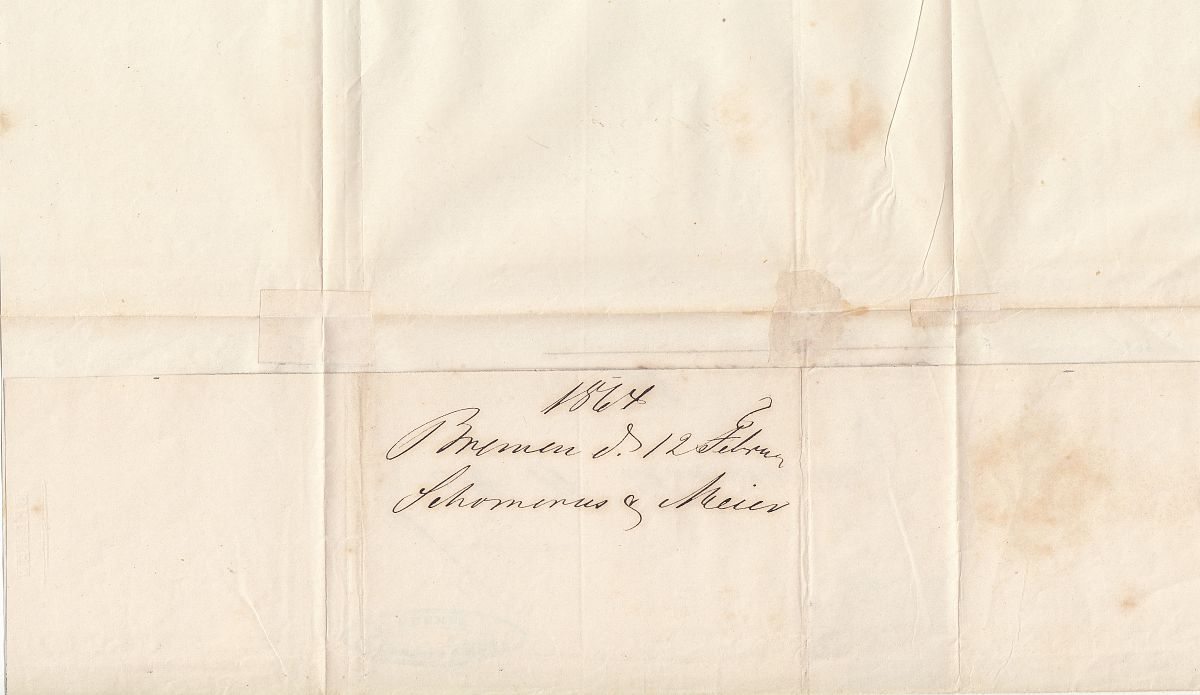 1864
Bremen d. 12 Februar
Schomerus & Meier